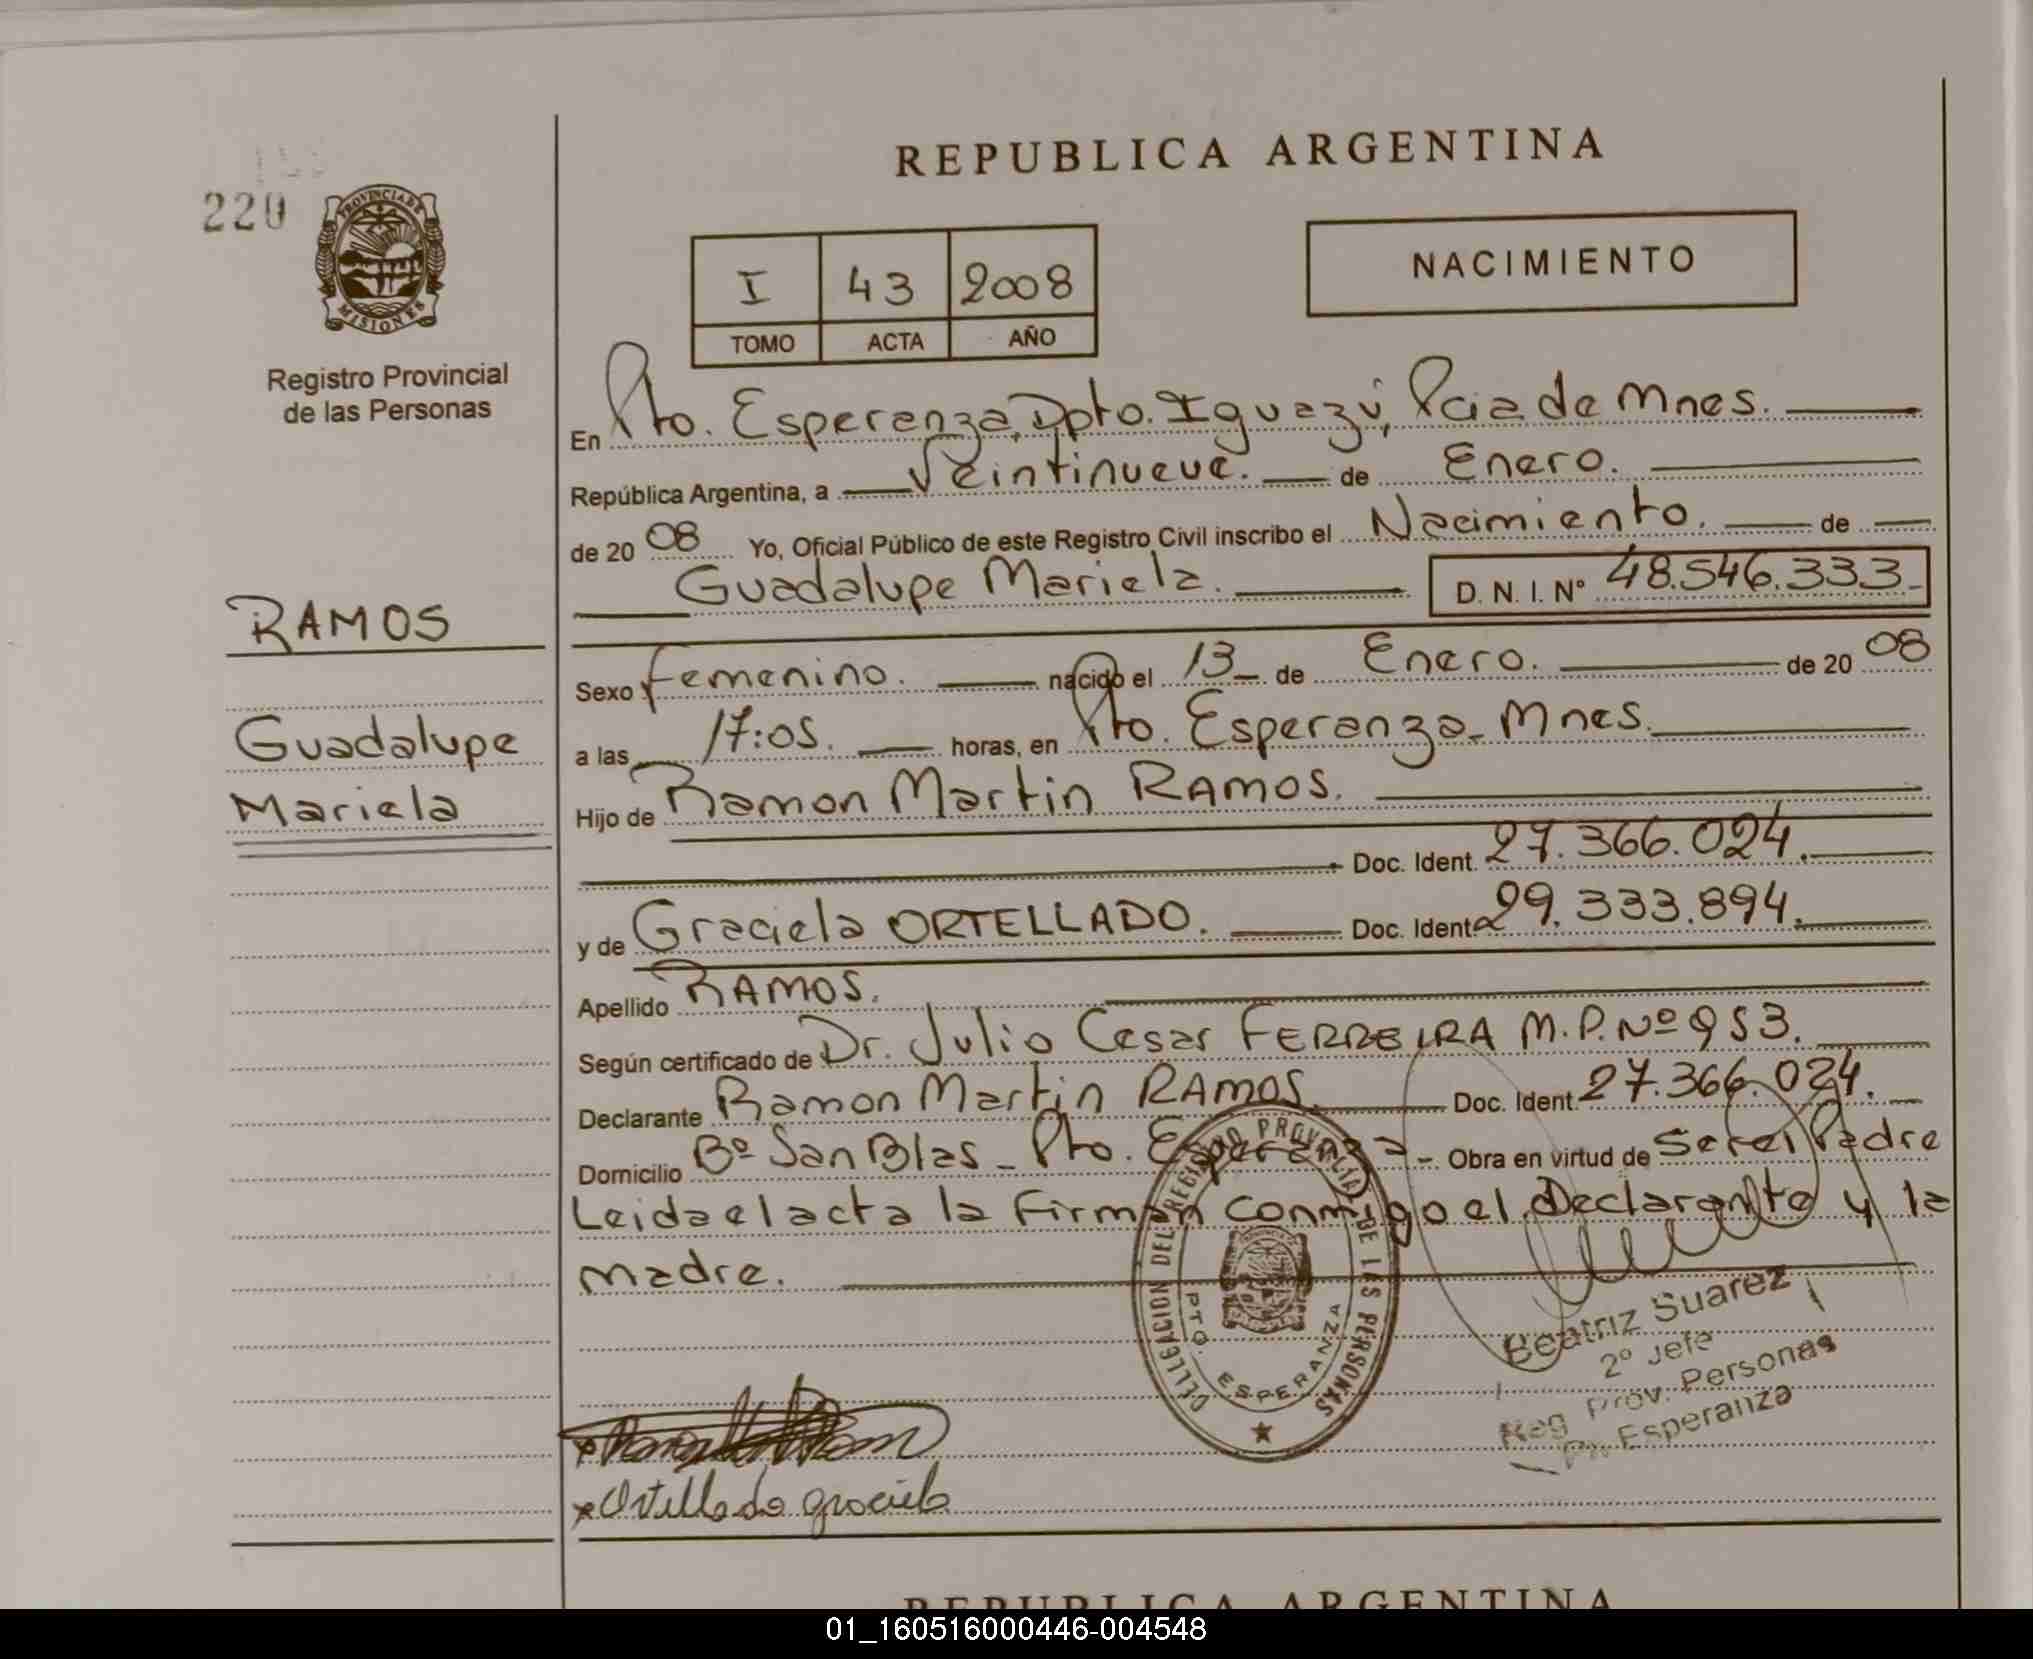 REPUBLICA ARGENTINA
220
PROVINCIA DE
MISIONES
Registro Provincial
de las Personas
I 43 2008
TOMO ACTA AÑO
NACIMIENTO
En Pto. Esperanza, Dpto. Iguazú, Pcia de Mnes.
República Argentina, a Veintinueve. de Enero.
de 20 08 Yo, Oficial Público de este Registro Civil inscribo el Nacimiento. de
Guadalupe Mariela. D. N. I. Nº 48.546.333
RAMOS
Guadalupe
Mariela
Sexo Femenino. nacido el 13 de Enero. de 20 08
a las 17:05. horas, en Pto. Esperanza - Mnes.
Hijo de Ramon Martin RAMOS.
Doc. Ident. 27.366.024.
y de Graciela ORTELLADO. Doc. Ident. 29.333.894.
Apellido RAMOS.
Según certificado de Dr. Julio Cesar FERREIRA M.P. Nº 953.
Declarante Ramon Martin RAMOS. Doc. Ident. 27.366.024.
Domicilio Bº San Blas - Pto. Esperanza - Obra en virtud de Ser el Padre
Leida el acta la Firman conmigo el Declarante y la
madre.
DELEGACION DEL REGISTRO PROVINCIAL DE LAS PERSONAS
PTO. ESPERANZA
Beatriz Suarez
2º Jefe
Reg Prov. Personas
Esperanza
x Ortellado graciela
REPUBLICA ARGENTINA
01_160516000446-004548